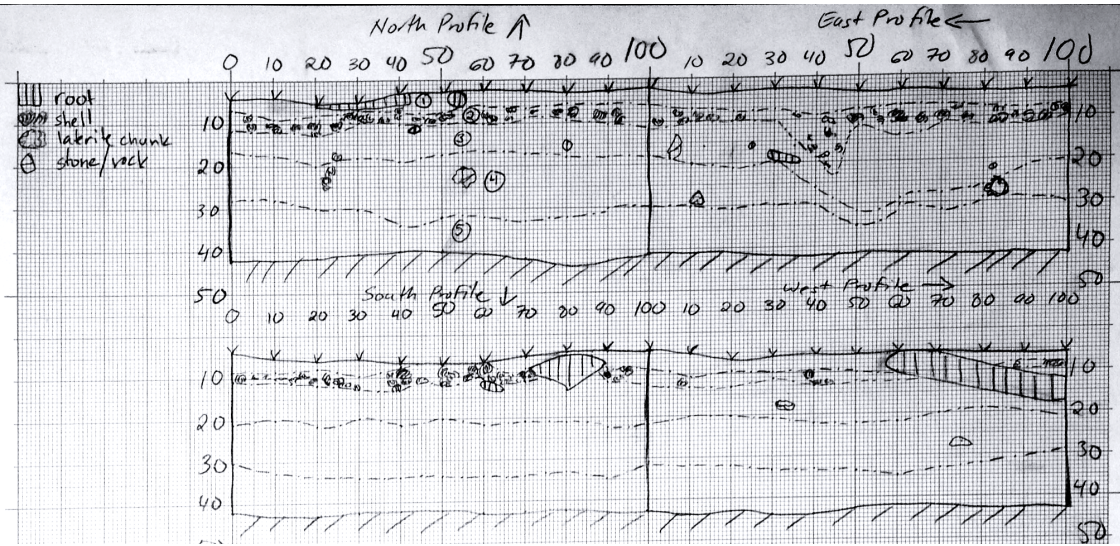 North Profile ↑ East Profile ←
0 10 20 30 40 50 60 70 80 90 100 10 20 30 40 50 60 70 80 90 100
root
shell
laterite chunk
stone/rock
10 ① ② 10
20 ③ ④ 20
30 ⑤ 30
40 40
50 50
South Profile ↓ West Profile →
0 10 20 30 40 50 60 70 80 90 100 10 20 30 40 50 60 70 80 90 100
10 10
20 20
30 30
40 40
50